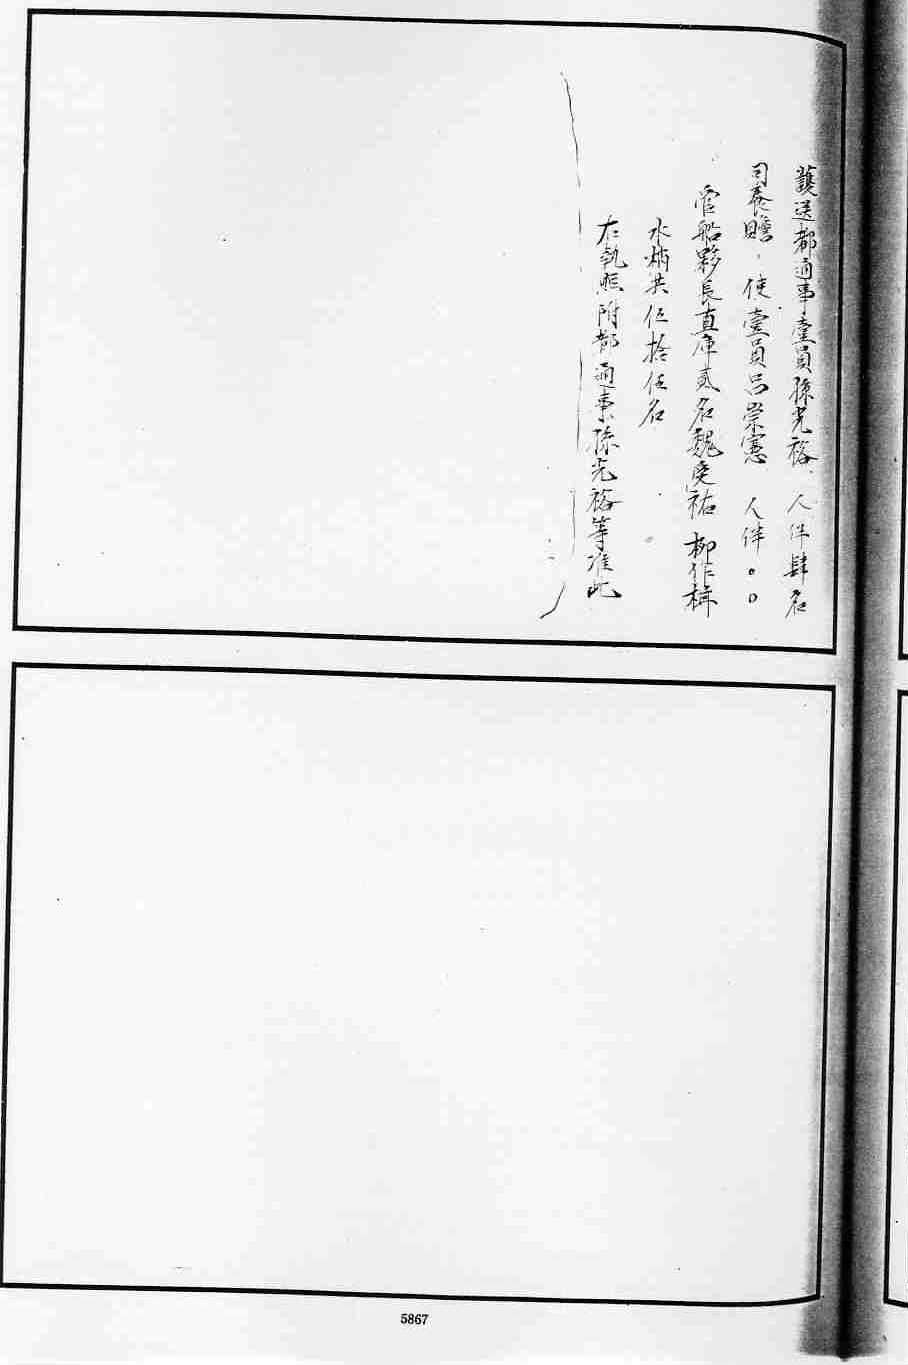 護送都通事壹員孫光裕 人伴肆名
司養贍 使壹員呂崇憲 人伴
管船夥長直庫貳名魏奕祐 柳作楫
水梢共伍拾伍名
右執照附都通事孫光裕等准此
5867